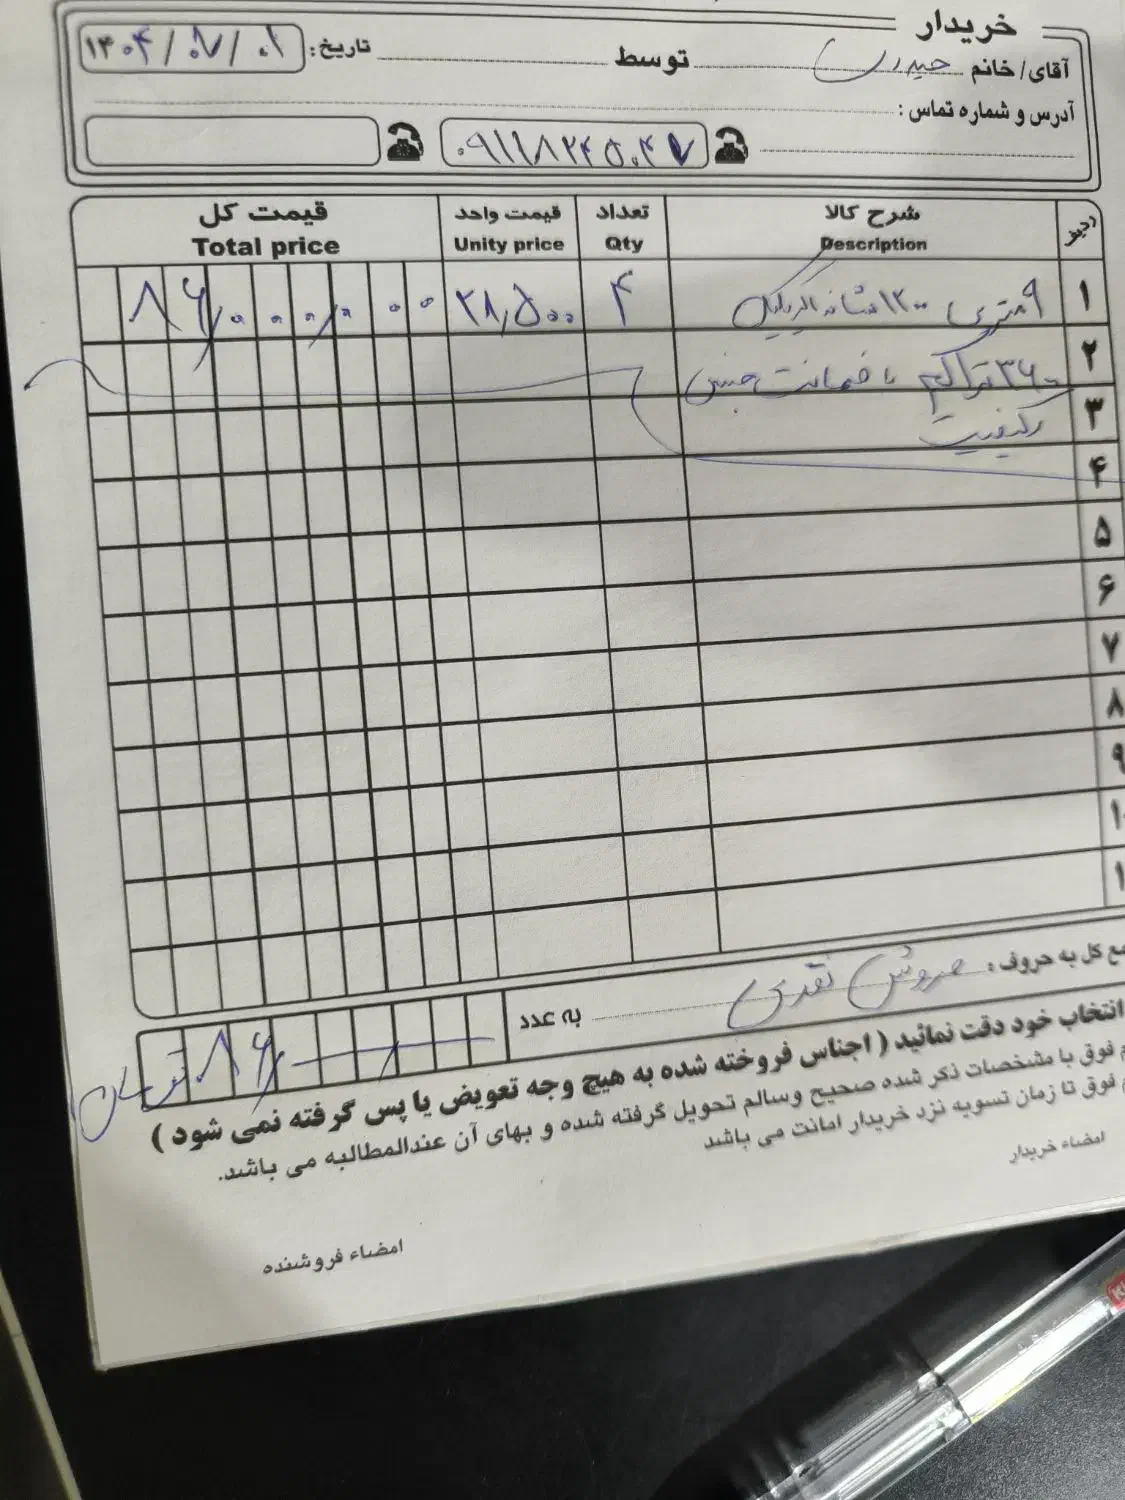 خریدار
آقای/خانم حیدری توسط تاریخ: ۱۴۰۴/۰۷/۰۱
آدرس و شماره تماس :
۰۹۱۱۸۲۴۵۰۴۷
ردیف شرح کالا تعداد قیمت واحد قیمت کل
Description Qty Unity price Total price
۱ ۹ متری ۱۲۰۰ شانه اکریلیک ۴ ۲۸,۵۰۰ ۸۶,۰۰۰,۰۰۰
۲ ۳۶۰۰ تراکم با ضمانت جنس
۳ کیفیت
۴
۵
۶
۷
۸
۹
جمع کل به حروف : فروش نقدی به عدد ۸۶/ تومان
انتخاب خود دقت نمائید ( اجناس فروخته شده به هیچ وجه تعویض یا پس گرفته نمی شود )
فوق با مشخصات ذکر شده صحیح وسالم تحویل گرفته شده و بهای آن عندالمطالبه می باشد.
فوق تا زمان تسویه نزد خریدار امانت می باشد
امضاء خریدار
امضاء فروشنده